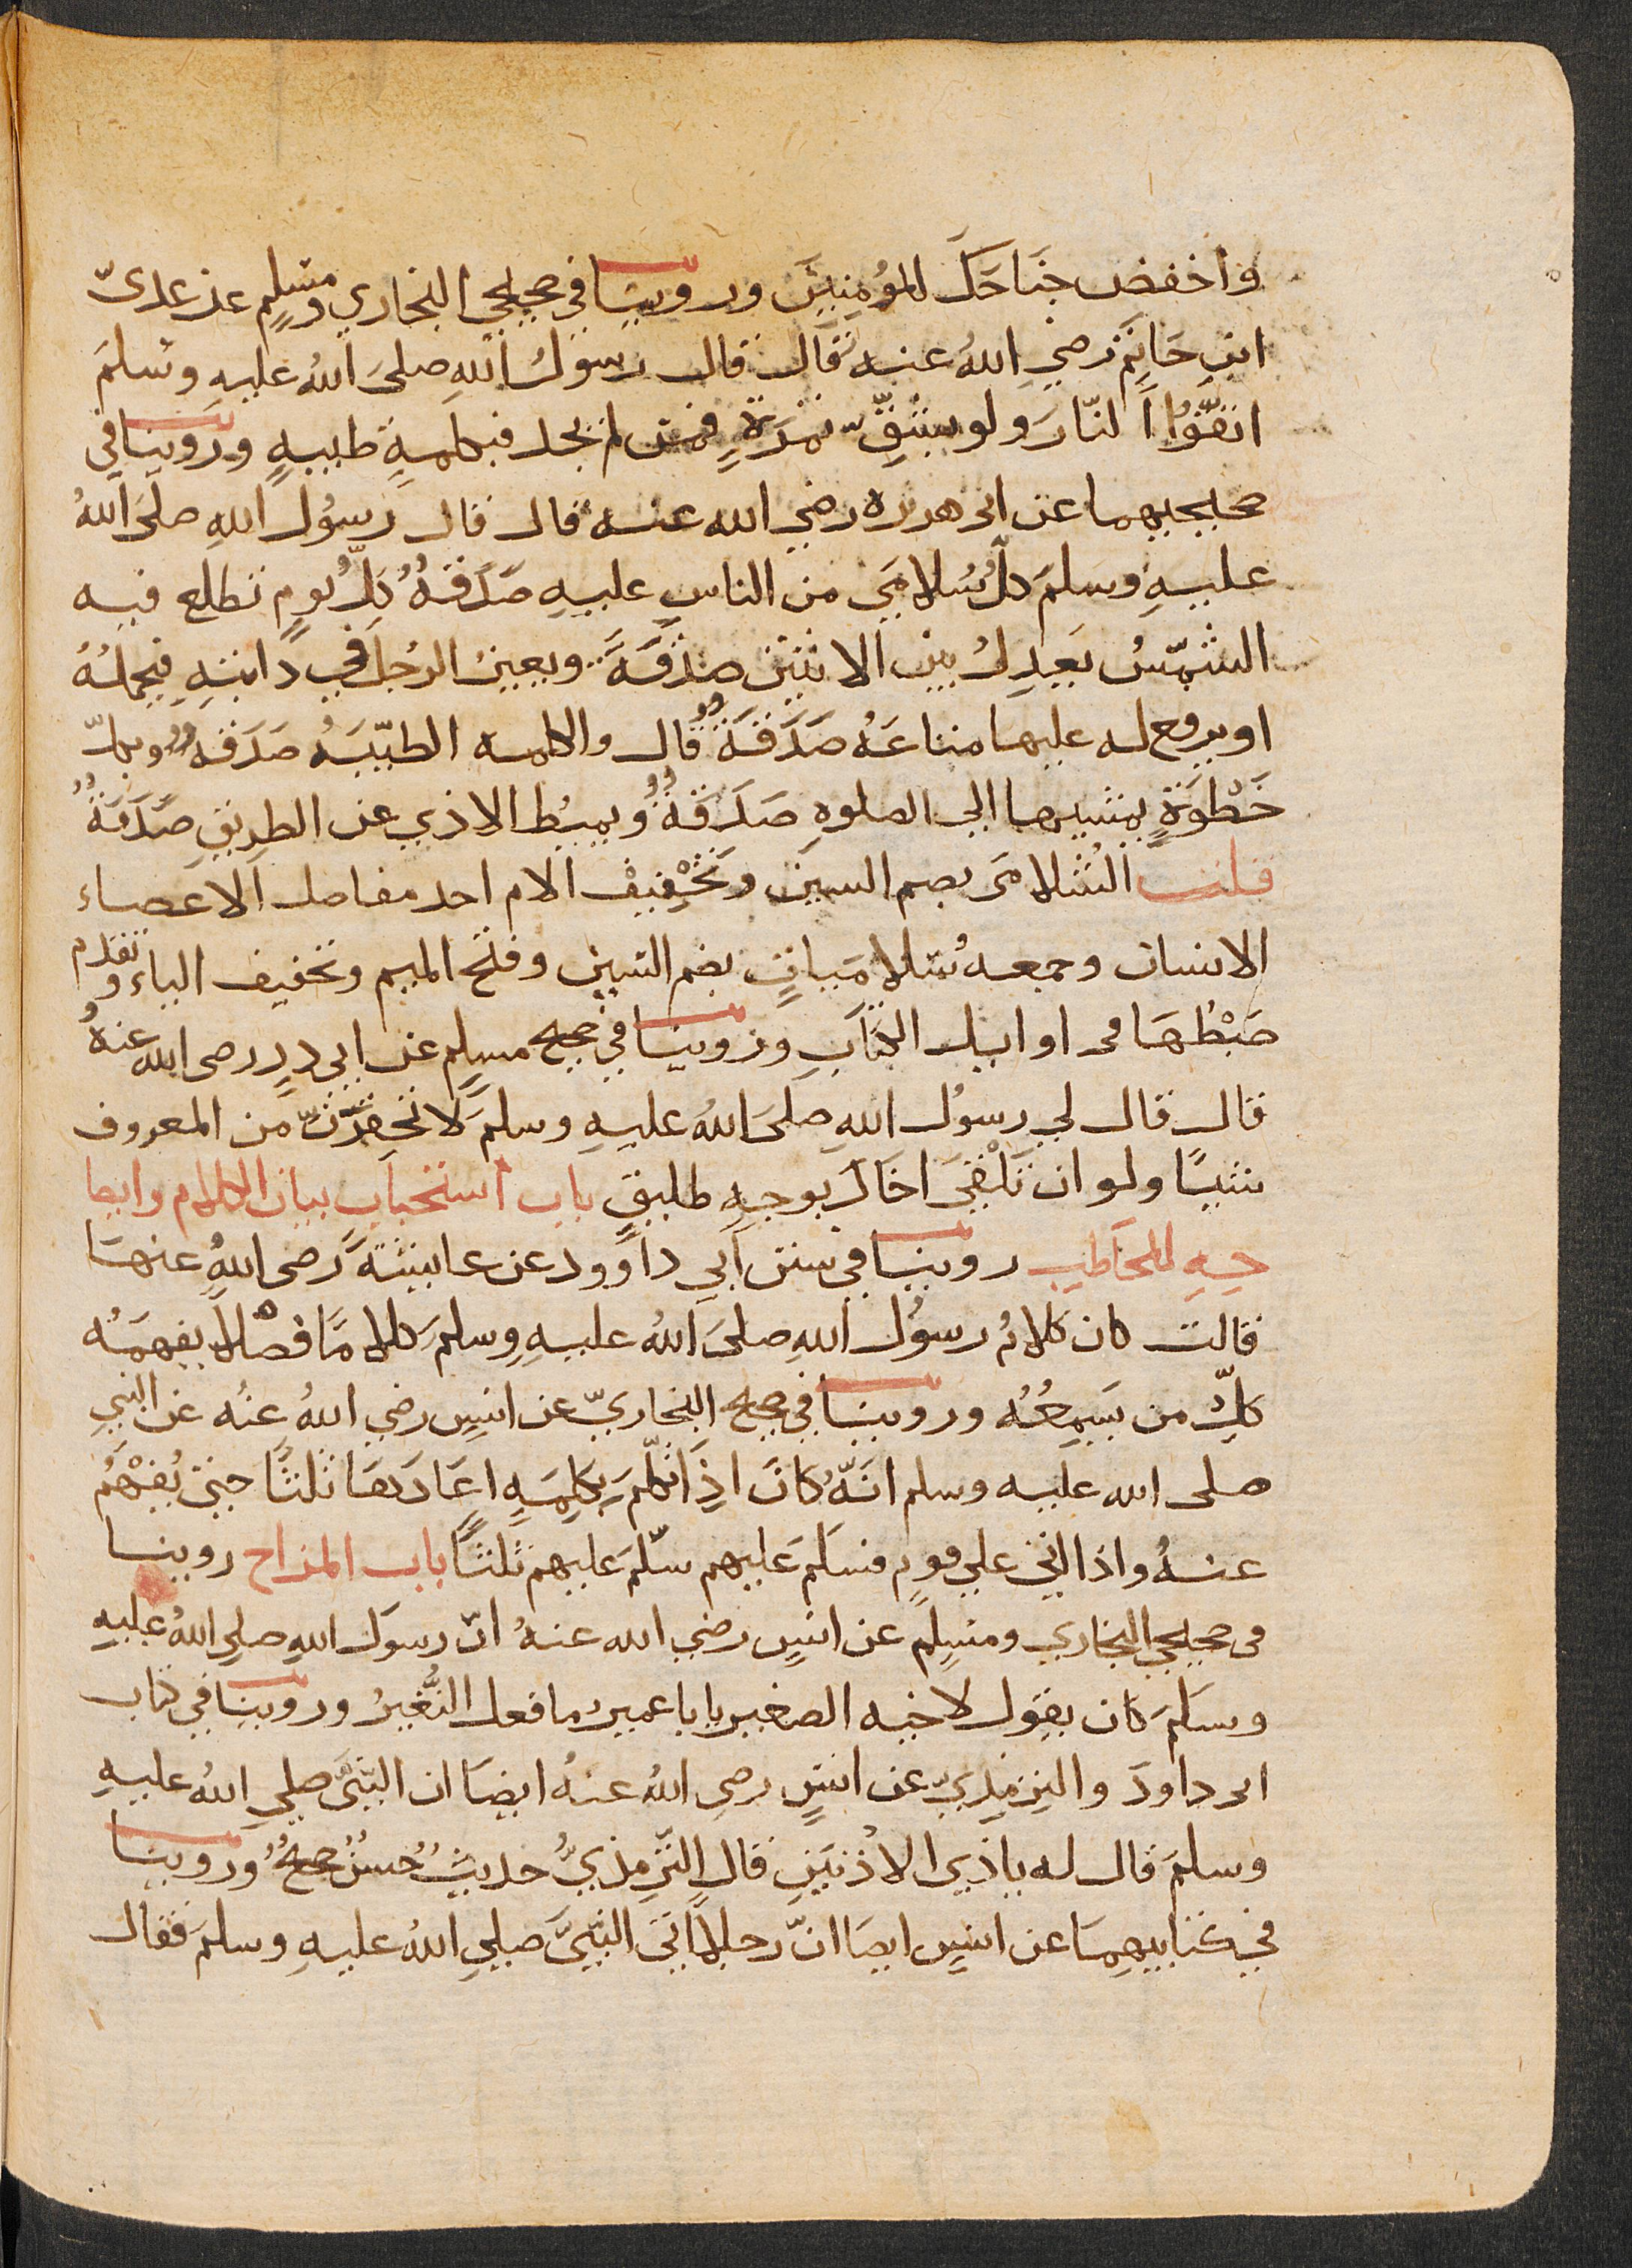 واخفض جَنَاحَكَ للمؤمِنِيْنَ وروينا في صحيحي البخاري ومسلمٍ عن عديّ
ابنِ حَاتِمٍ رضي اللهُ عنه قال قال رسولُ اللهِ صلى اللهُ عليهِ وسلمَ
اتقُوا النّارَ ولو بشقِّ تمرَةٍ فمن لم يجد فبكلمةٍ طيبةٍ وروينا في
صحيحيهما عن ابي هريرة رضي الله عنه قال قال رسُول اللهِ صلى اللهُ
عليهِ وسلمَ كلُّ سُلامَى من الناسِ عليهِ صَدَقَةٌ كلَّ يومٍ تطلع فيه
الشمسُ يَعدِلُ بين الاثنين صدقَةٌ ويعين الرجُل في دَابتِهِ فيحملُهُ
او يرفع له عليها متاعَهُ صَدَقَةٌ قال والكلمه الطيّبَهُ صَدَقَهٌ وبكلّ
خَطْوَةٍ يمشيها الي الصلوهِ صَدَقَةٌ ويميط الاذي عن الطريقِ صَدَقَةٌ
قلت السُّلامَى بضم السين وتخْفِيفْ الام احد مفاصل الاعضاء
الانسان وجمعه سُلامَيات بضم السين وفتح الميم وتخفيف الياء وتقدم
ضبْطُهَا في اوايل الكتَابِ وروينا في صحيح مسلِم عن ابي ذرٍ رضى الله عنهُ
قال قال لي رسوُل اللهِ صلىَ اللهُ عليهِ وسلمَ لا تحقِرَنّ من المعروف
شيئًا ولو ان تَلْقىَ اخَاكَ بوجهٍ طليقٍ باب استحباب بيان الكلام وايضا
حِهِ للمخَاطب روينا في سنن ابي داوود عن عايشَةَ رَضى اللهُ عنهَا
قالت كان كلامُ رسوُل اللهِ صلىَ اللهُ عليهِ وسلمَ كلامًا فصْلا يفهمَهُ
كلّ من يَسمعُهُ وروينا في صحيح البخاريّ عن انسٍ رضي اللهُ عنُه عن النبي
صلى الله عليه وسلم انَّهُ كانَ اذا تكلَّمَ بِكَلِمَةٍ اعَادَهَا ثلثًا حتى تُفهْمُ
عنهُ واذا اتى علي قومٍ فسَلمَ عليهم سلّمَ عليهم ثلثًا باب المزاح روينا
في صحيحي البخاري ومسلِمٍ عن انسٍ رضي الله عنهُ انّ رسوَل اللهِ صلي اللهُ عليهِ
وسلمَ كان يقول لاخيه الصغير يابا عمير ما فعل النُّغيرُ وروينا في كتاب
ابى داودَ والتِرمِذيّ عن انسٍ رضى اللهُ عنهُ ايضَا ان النَّبىَّ صلي اللهُ عليهِ
وسلمَ قال له ياذي الاذنين قال التِّرمذيُّ حديثٌ حسنٌ صحيحٌ وروينا
في كتابيهمَا عن انسٍ ايضَا انّ رجلًا اتىَ النّبيَّ صلي اللهُ عليهِ وسلمَ فقال